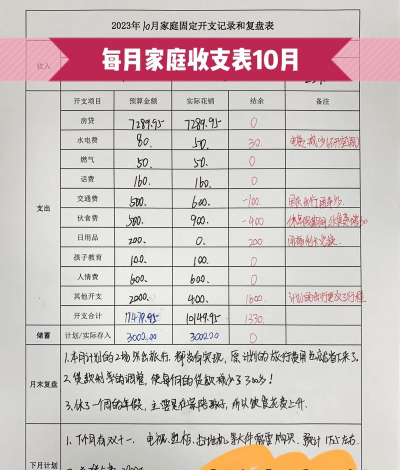 2023年10月家庭固定开支记录和复盘表
每月家庭收支表10月
收入
开支项目 预算金额 实际花销 结余 备注
房贷 7289.95 7289.95 0
水电费 80. 50. 30.
燃气 50. 50. 0
话费 160. 160. 0
支出
交通费 500. 600. -100.
伙食费 500. 900. -400
日用品 200. 0 200
孩子教育 100. 100. 0
人情费 600. 600. 0
其他开支 2000. 400. 1600.
开支合计 11479.95 10149.95 1330.
储蓄 计划/实际存入 3000.00 3000.00 0
月末复盘
1.本月计划的2场外出旅行,都没有实现,原计划的旅行费用也节省下来了.
2.贷款利率的调整,使每月的贷款减少了300多!
3.休了一周的年假,主要是在家陪孩子,所以伙食花费上升.
下月计划
1.下月有双十一,电视、数码、扫地机等大件需要购买,预计1万5左右.